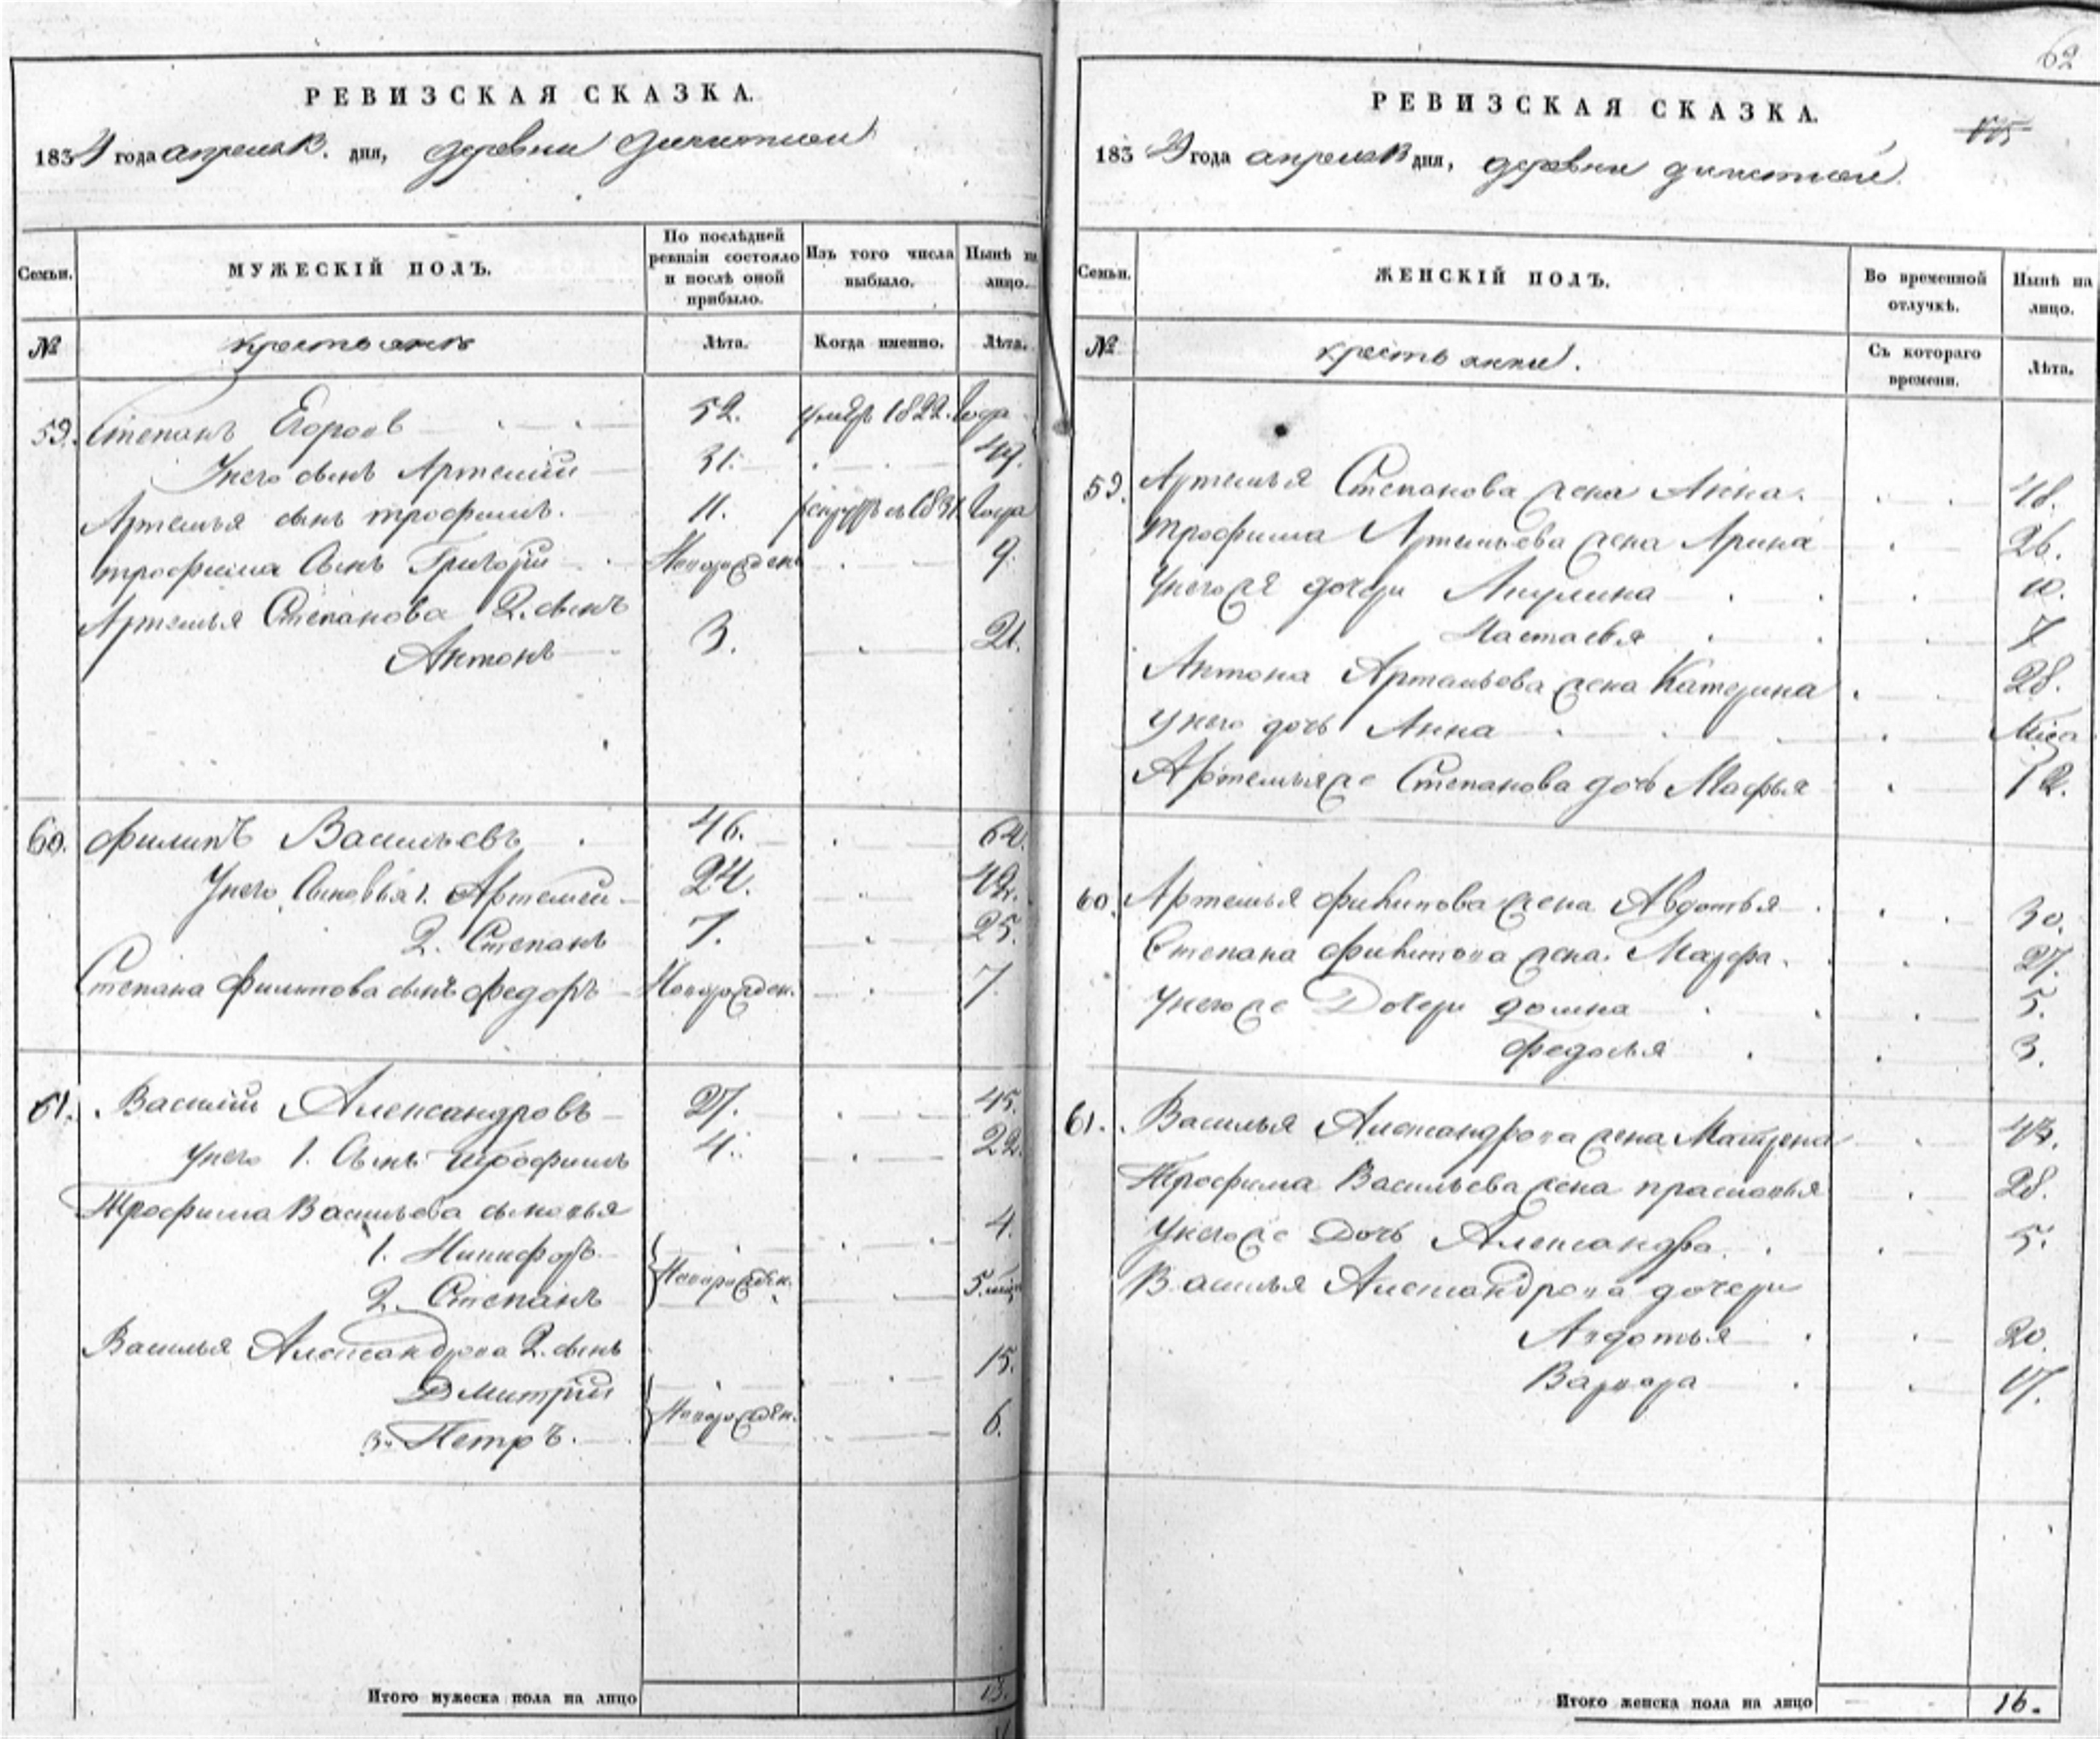 РЕВИЗСКАЯ СКАЗКА.
1834 года апреля дня, деревни
МУЖЕСКІЙ ПОЛЪ.
Семьи.
По послѣдней ревизіи состояло и послѣ оной прибыло.
Изъ того числа выбыло.
Нынѣ на лицо.
№ крестьянъ Лѣта. Когда именно. Лѣта.
59. Степанъ Егоровъ 52. умеръ 1822. года
У него сынъ Артемій 31. 49.
Артемья сынъ трофимъ. 11. въ 1831. года
трофима Сынъ Григорій Новорожден 9.
Артемья Степанова 2. сынъ
Антонъ 3. 21.
60. филипъ Васильевъ 46. 64.
У него Сыновья 1. Артемей 24. 42.
2. Степанъ 7. 25.
Степана Филипова сынъ федоръ Новорожден. 7.
61. Василій Александровъ 27. 45.
у него 1. Сынъ трофимъ 4. 22.
Трофима Васильева сыновья
1. Никифоръ Новорожден. 4.
2. Степанъ 5. мѣся
Василья Александрова 2. сынъ
Дмитрій Новорожден. 15.
3. Петръ. 6.
Итого мужеска пола на лицо 13.
62
РЕВИЗСКАЯ СКАЗКА.
1834 года апреля дня, деревни
ЖЕНСКІЙ ПОЛЪ.
Семьи.
Во временной отлучкѣ.
Нынѣ на лицо.
№ крестьянки. Съ котораго времени. Лѣта.
59. Артемья Степанова жена Анна. 48.
трофима Артемьева жена Арина 26.
У негоже дочери Акулина 10.
Настасья 7
Антона Артемьева жена Катерина 28.
У него дочь Анна
Артемьяже Степанова дочь Марфья 12.
60. Артемья филипова жена Авдотья 30.
Степана филипова жена Марфа. 27.
У негоже Дочери домна 5.
федосья 3.
61. Василья Александрова жена Матрена 43.
Трофима Васильева жена прасковья 28.
У негоже Дочь Александра. 5.
Василья Александрова дочери
Авдотья 20.
Варвара 17.
Итого женска пола на лицо 16.